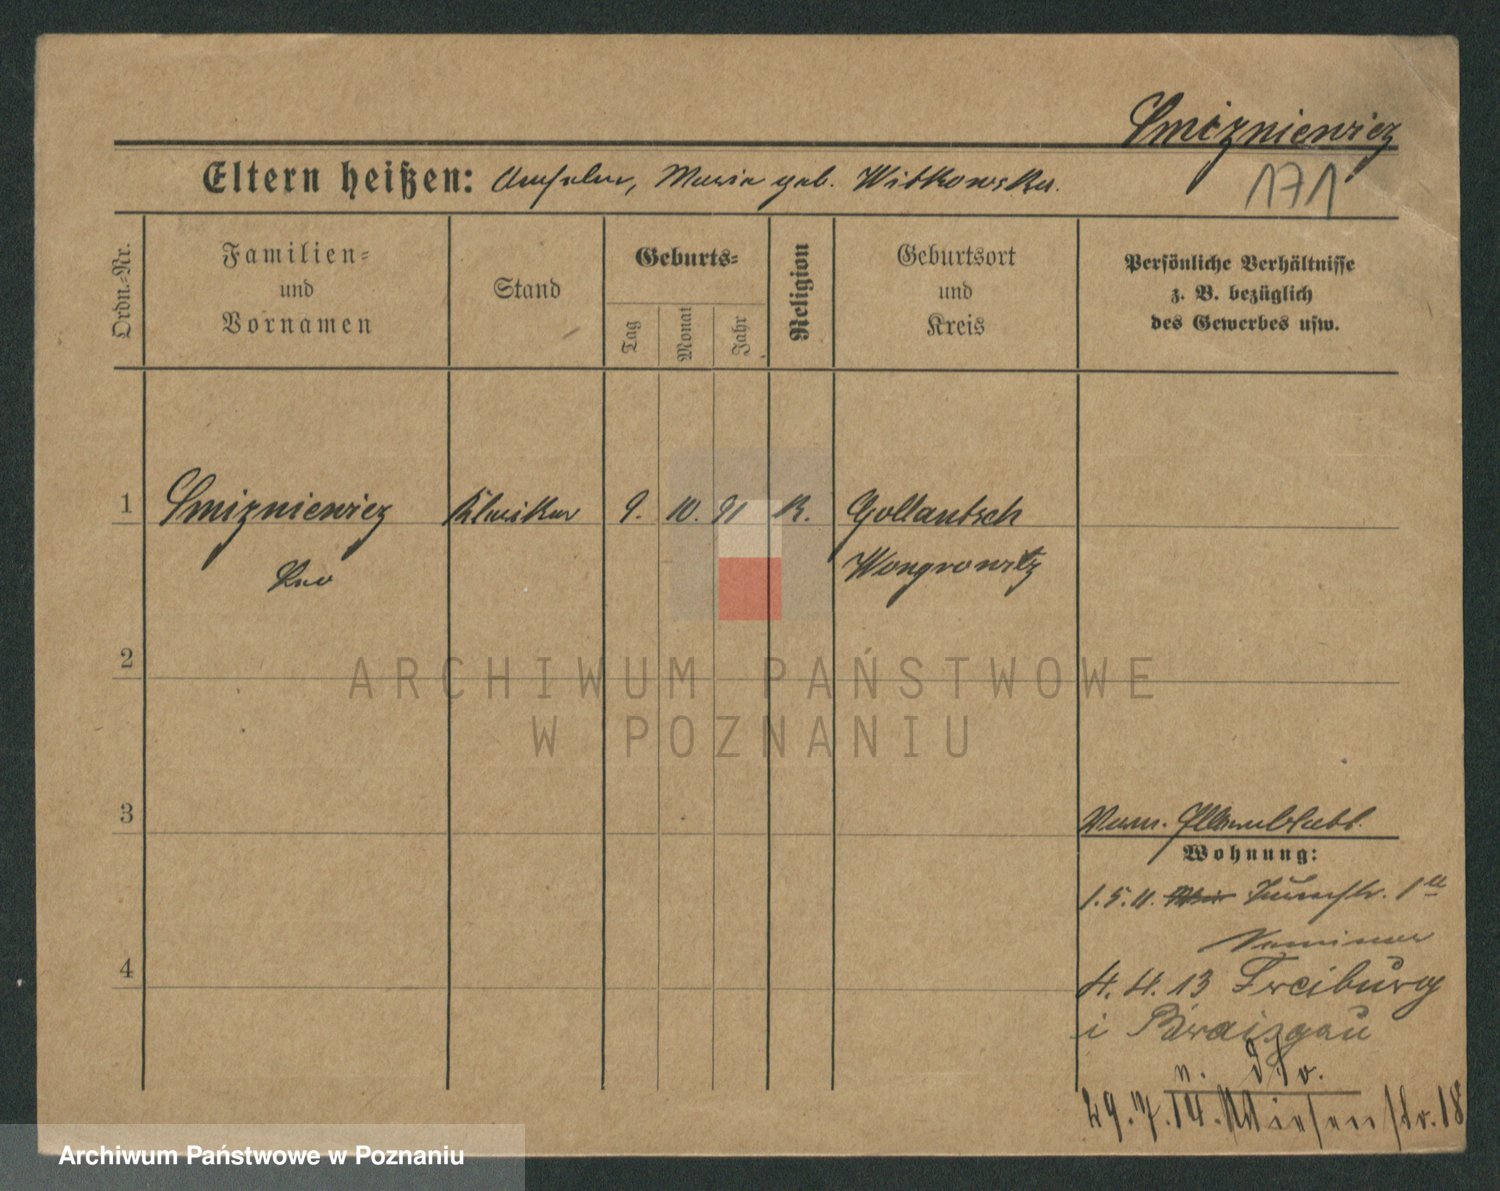 Smizniewicz
171
Eltern heißen: Anselm, Maria geb. Witkowska.
Ordn.-Nr.
Familien- und Vornamen
Stand
Geburts-
Tag
Monat
Jahr
Religion
Geburtsort und Kreis
Persönliche Verhältnisse
z. B. bezüglich
des Gewerbes usw.
1 Smizniewicz Kleriker 9. 10. 91 K. Gollantsch
Leo Wongrowitz
2
3
Wohnung:
1.5.11.
4
4. 4. 13 Freiburg
i Braisgau
n. d. o.
29.7.14. Wiesenstr. 18
ARCHIWUM PAŃSTWOWE
W POZNANIU
Archiwum Państwowe w Poznaniu